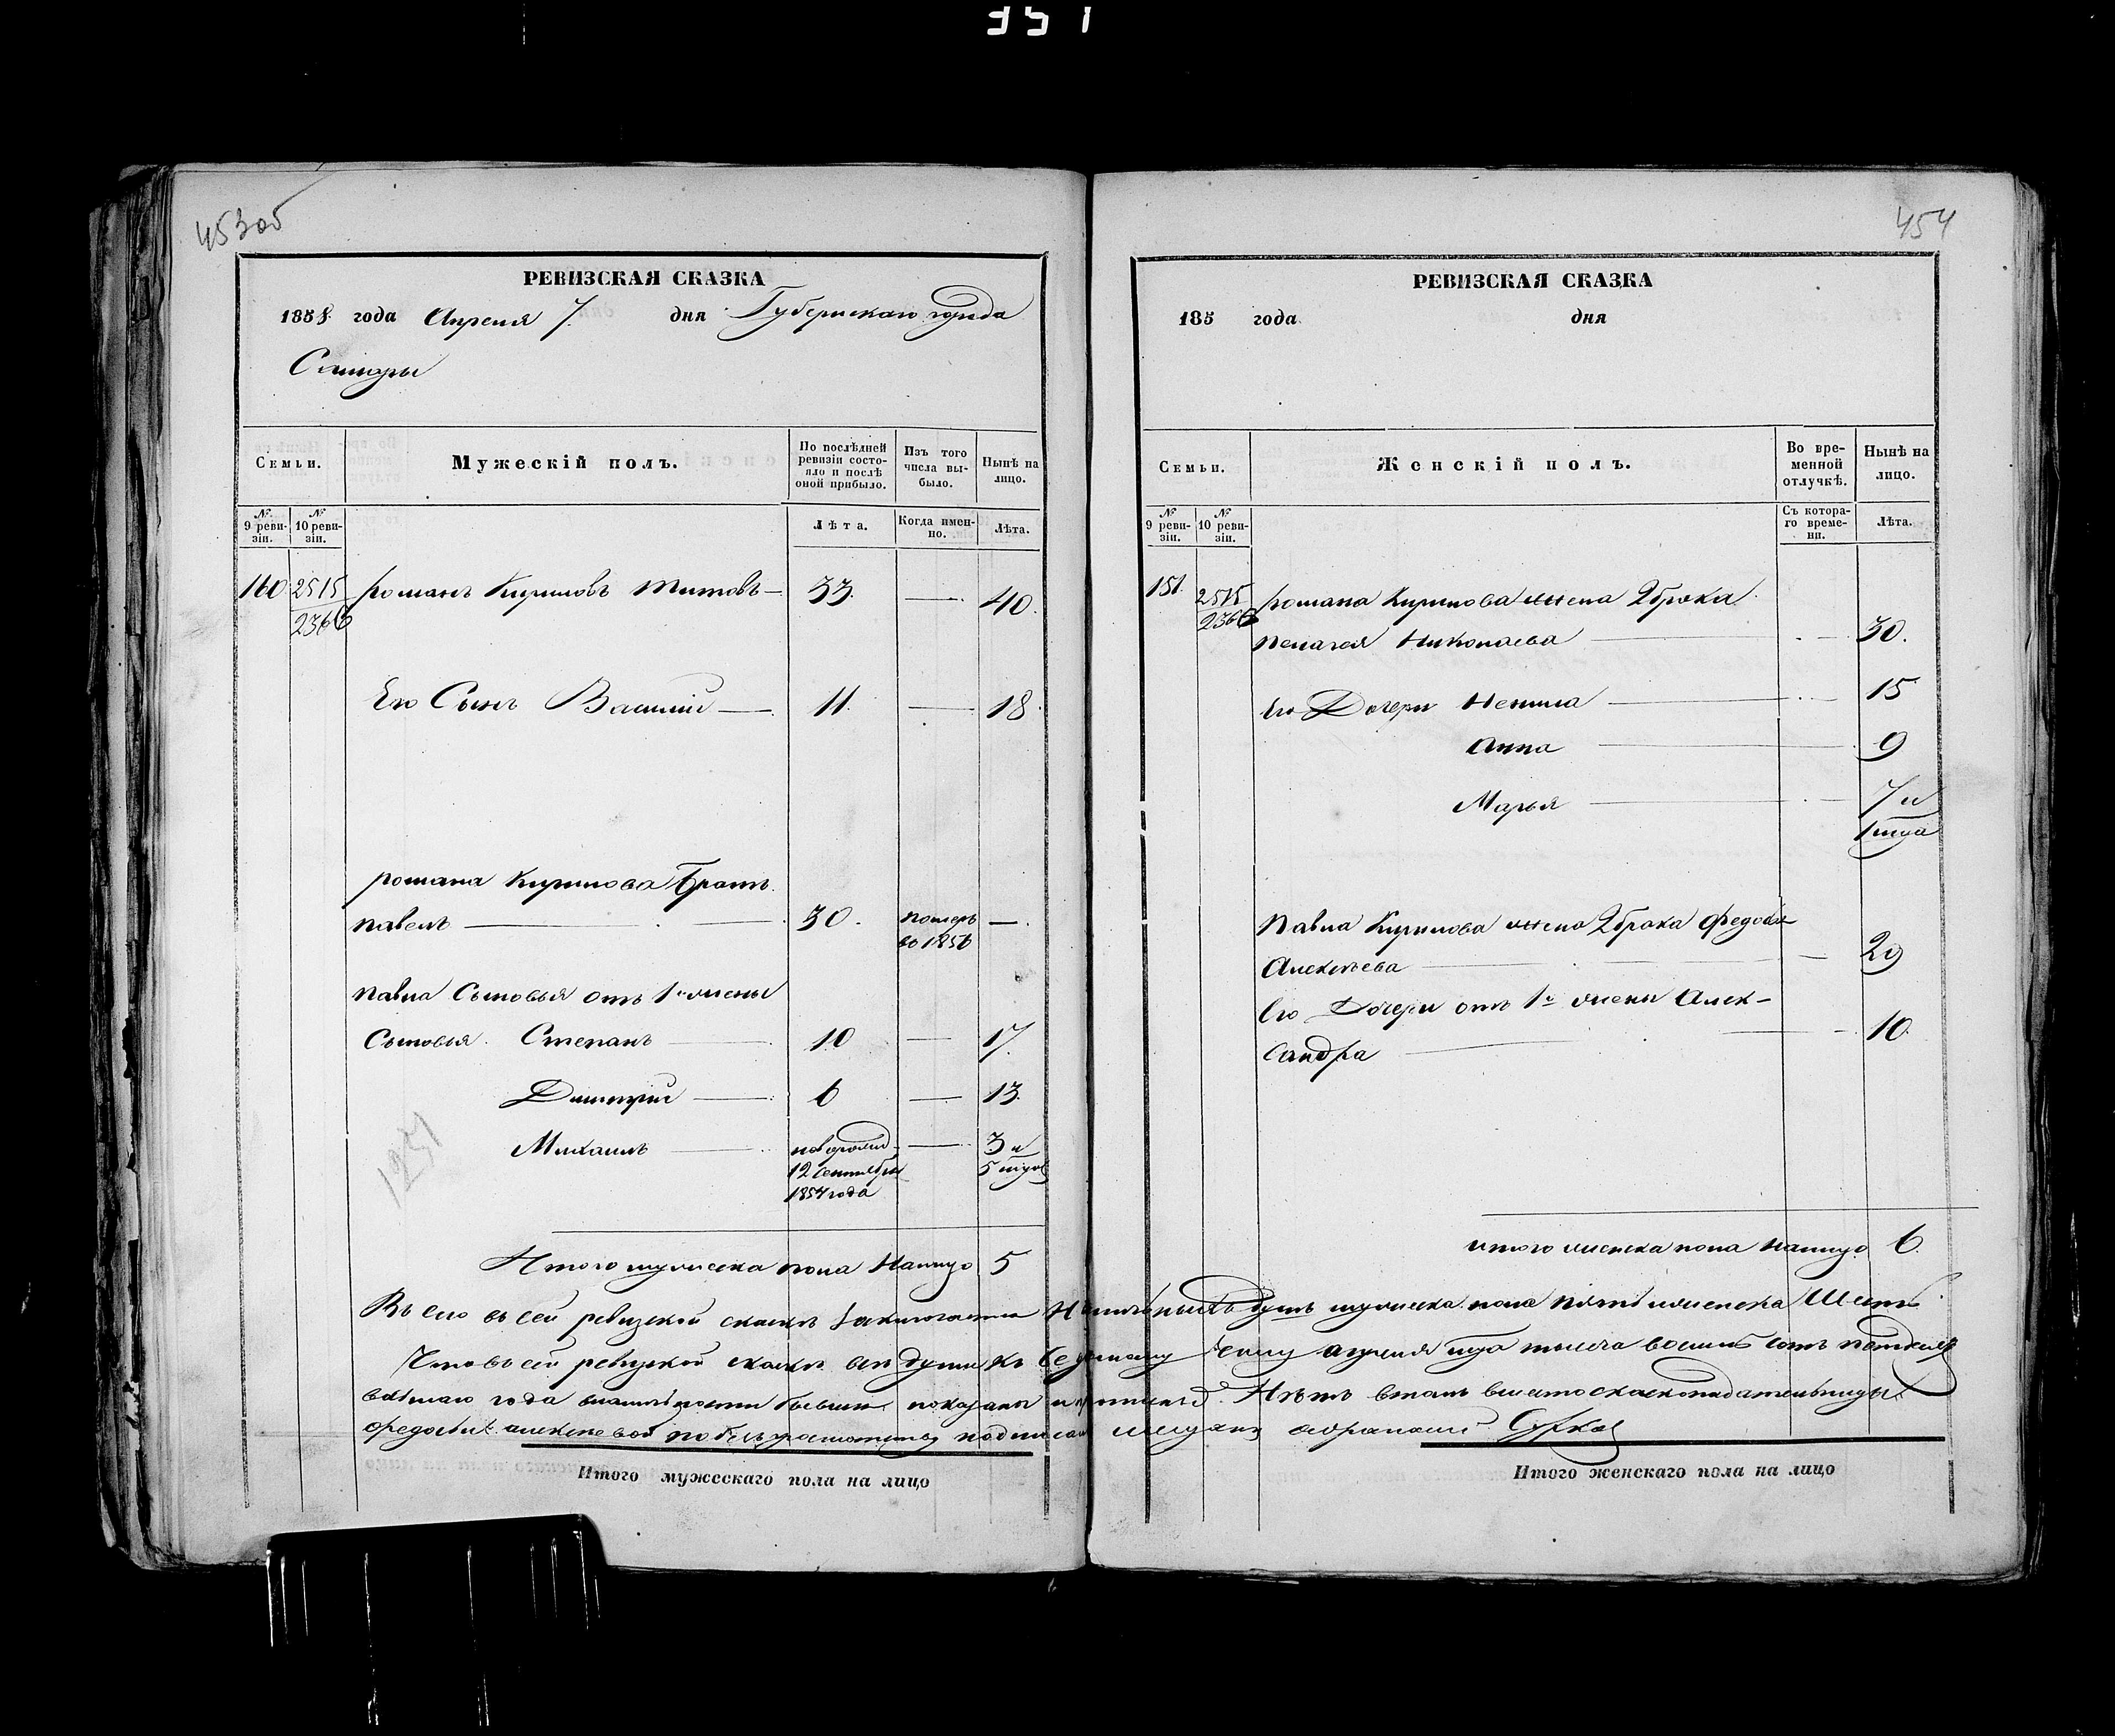 351
453об
РЕВИЗСКАЯ СКАЗКА
1858 года Апреля 7 дня Губернскаго города
Самары
Семьи.
Мужескій полъ.
По послѣдней ревизіи состояло и послѣ оной прибыло.
Изъ того числа выбыло.
Нынѣ на лицо.
№ 9 ревизіи.
№ 10 ревизіи.
Лѣта.
Когда именно.
Лѣта.
160 2515 романъ Кириловъ Титовъ — 33. — 40.
2366
Его Сынъ Василий — 11. — 18.
романа Кирилова Братъ
павелъ — 30. померъ —
во 1856
павла Сыновья отъ 1й жены
Сыновья Степанъ — 10 — 17.
Димитрий — 6 — 13.
Михаилъ — новорожд. — 3 и
12 сентября 5 мцов
1854 года
1251
Итого мужеска пола Налицо 5
454
РЕВИЗСКАЯ СКАЗКА
185 года дня
Семьи.
Женскій полъ.
Во временной отлучкѣ.
Нынѣ на лицо.
№ 9 ревизіи.
№ 10 ревизіи.
Съ котораго времени.
Лѣта.
151. 2515 романа Кирилова жена 2 брака
2366
пелагея Николаева — 30.
Его Дочери Ненила — 15
Анна — 9
Марья — 7 и
1 мца
Павла Кирилова жена 2 брака федосья
Алексеева — 29
Его Дочери отъ 1й жены Алек-
сандра — 10.
итого женска пола налицо 6.
Въ сей ревизской сказке заключается Наличныхъ душъ мужеска пола пять и женска Шесть
Что въ сей ревизской сказке все души къ седьмому числу апреля мца тысяча восемь сотъ пятдесят
восьмаго года бывши показаны и Нетъ въ томъ вместо сказкоподательницы
федосьи алексеевой по безграмотству подписал
Итого мужескаго пола на лицо
Итого женскаго пола на лицо